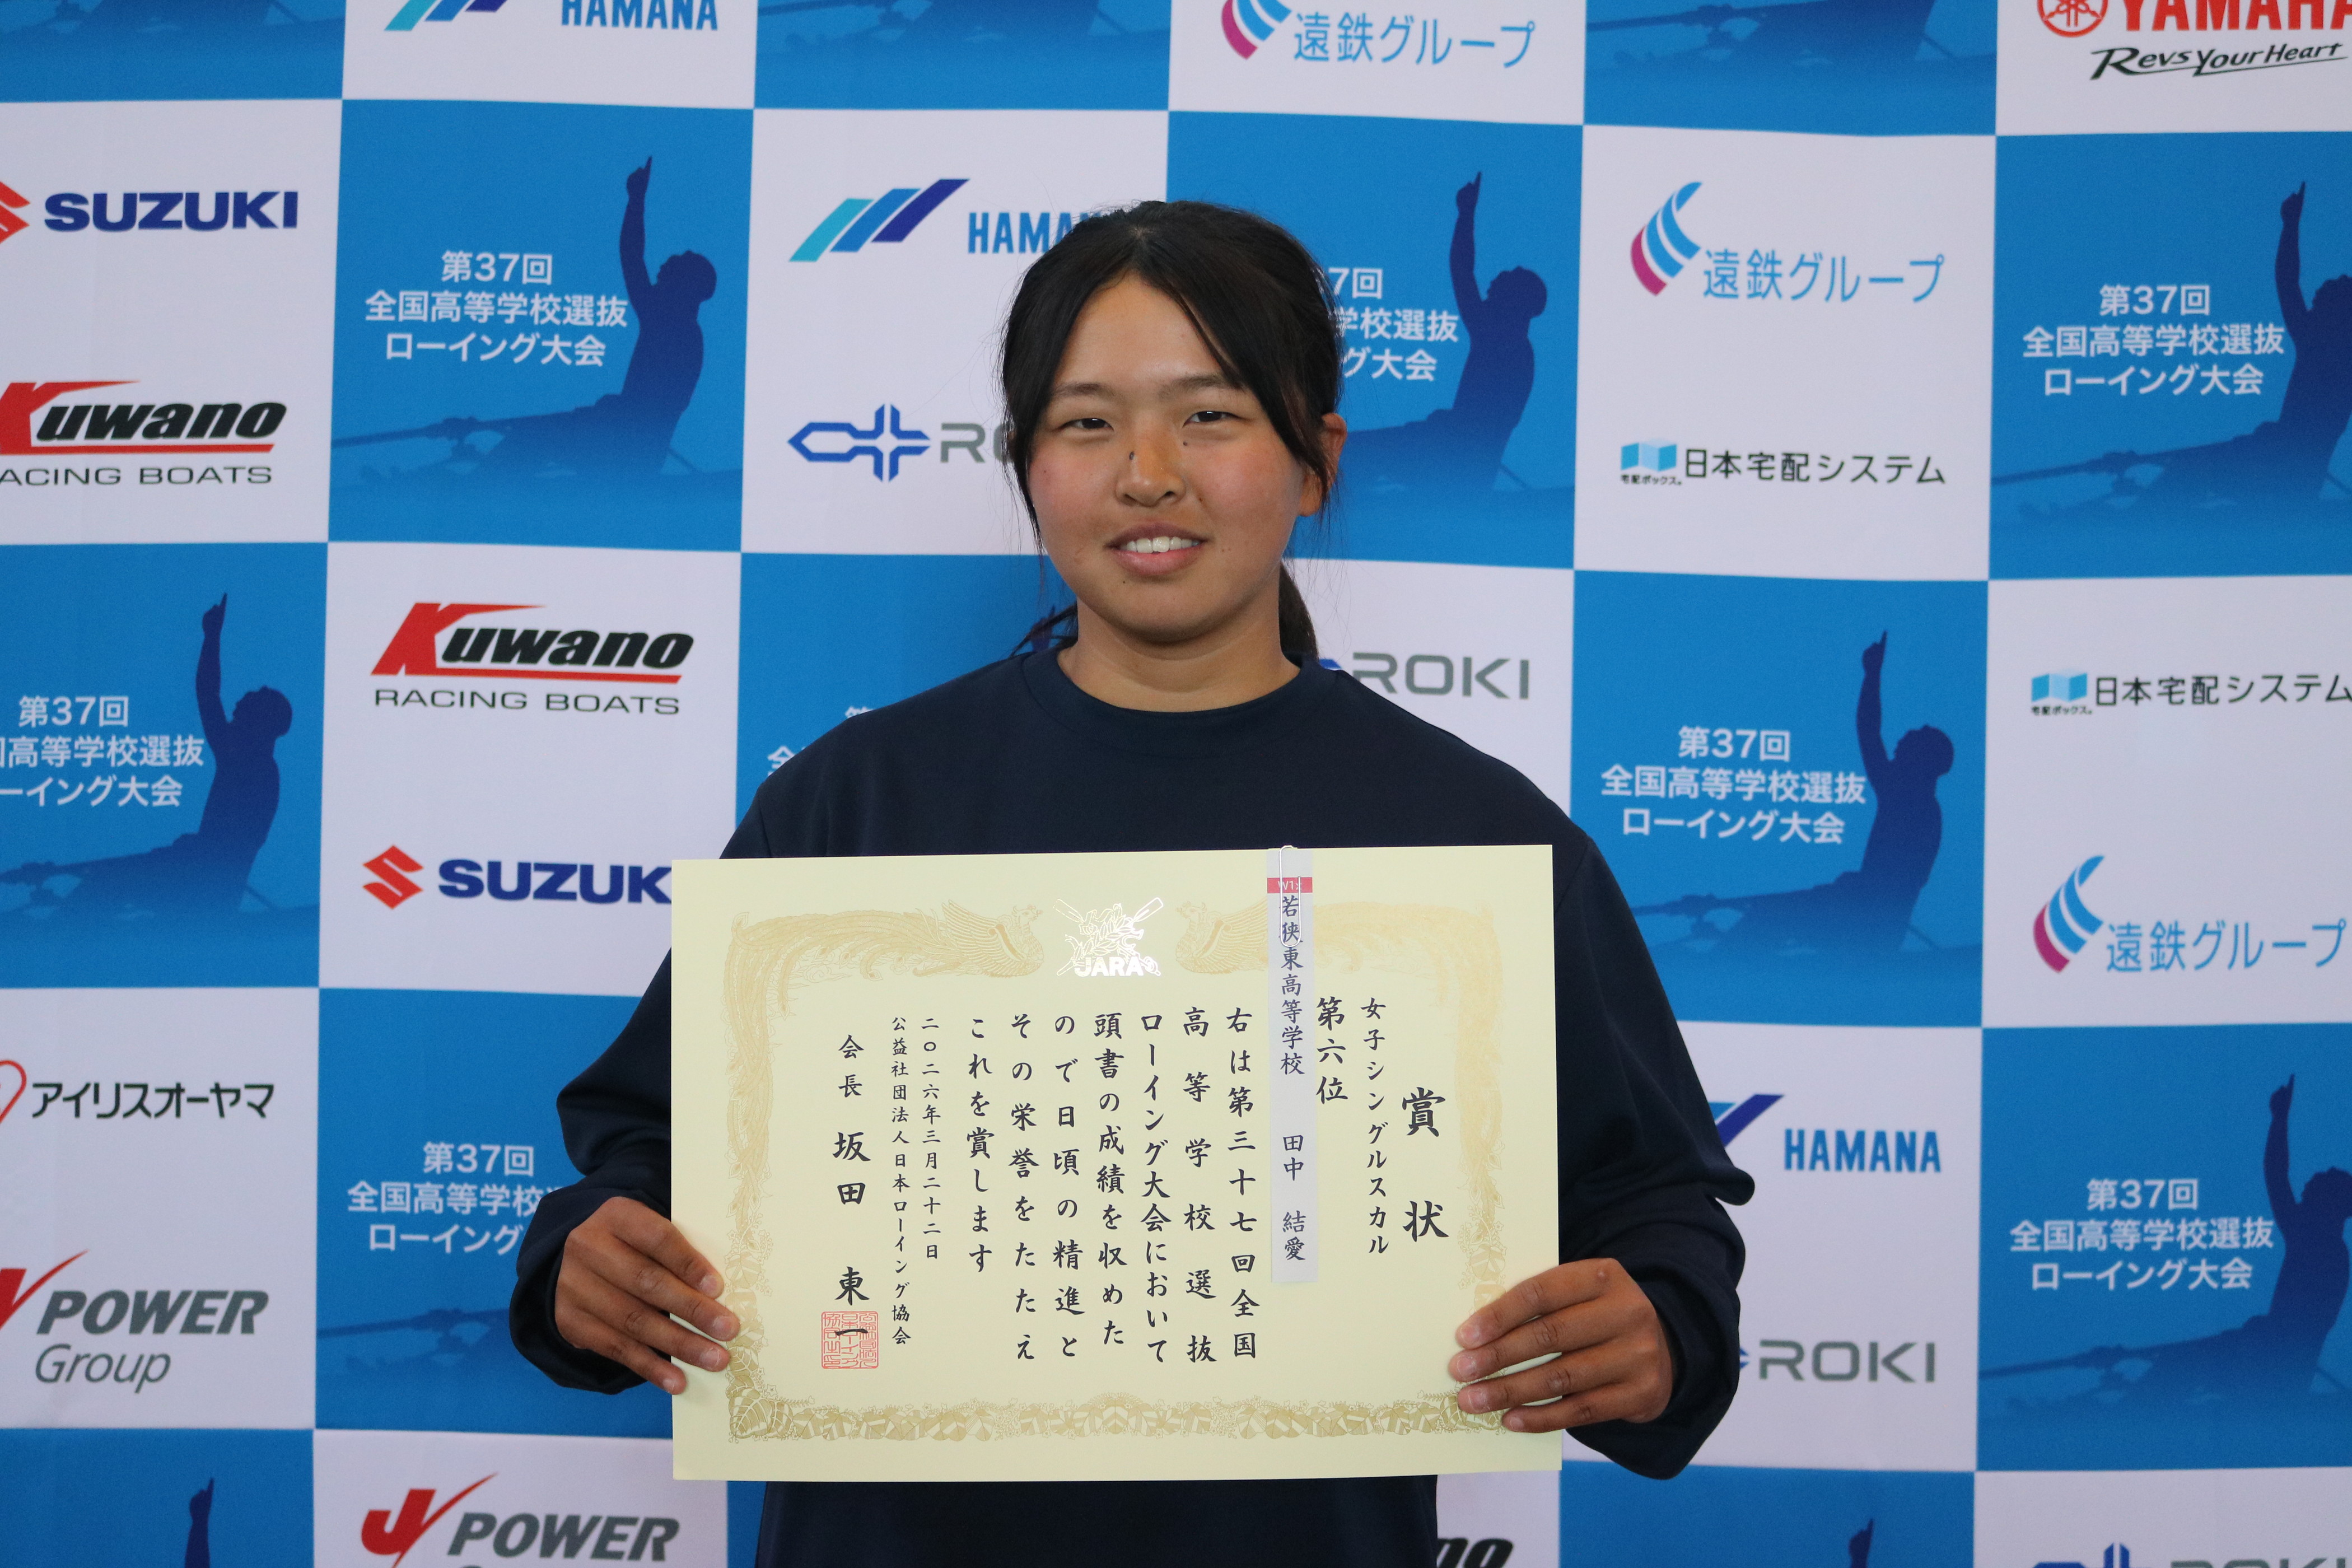 HAMANA
遠鉄グループ
YAMAHA
Revs Your Heart
SUZUKI
第37回
全国高等学校選抜
ローイング大会
HAMA
7回
学校選抜
グ大会
遠鉄グループ
第37回
全国高等学校選抜
ローイング大会
Kuwano
RACING BOATS
RO
宅配ボックス。
日本宅配システム
第37回
国高等学校選抜
ーイング大会
Kuwano
RACING BOATS
SUZUK
ROKI
第37回
全国高等学校選抜
ローイング大会
宅配ボックス。
日本宅配システム
遠鉄グループ
アイリスオーヤマ
第37回
全国高等学校
ローイング
POWER
Group
HAMANA
ROKI
第37回
全国高等学校選抜
ローイング大会
POWER
JARA
賞状
女子シングルスカル
第六位
W1x
若狭東高等学校 田中 結愛
右は第三十七回全国
高等学校選抜
ローイング大会において
頭書の成績を収めた
ので日頃の精進と
その栄誉をたたえ
これを賞します
二〇二六年三月二十二日
公益社団法人日本ローイング協会
会長 坂田 東一